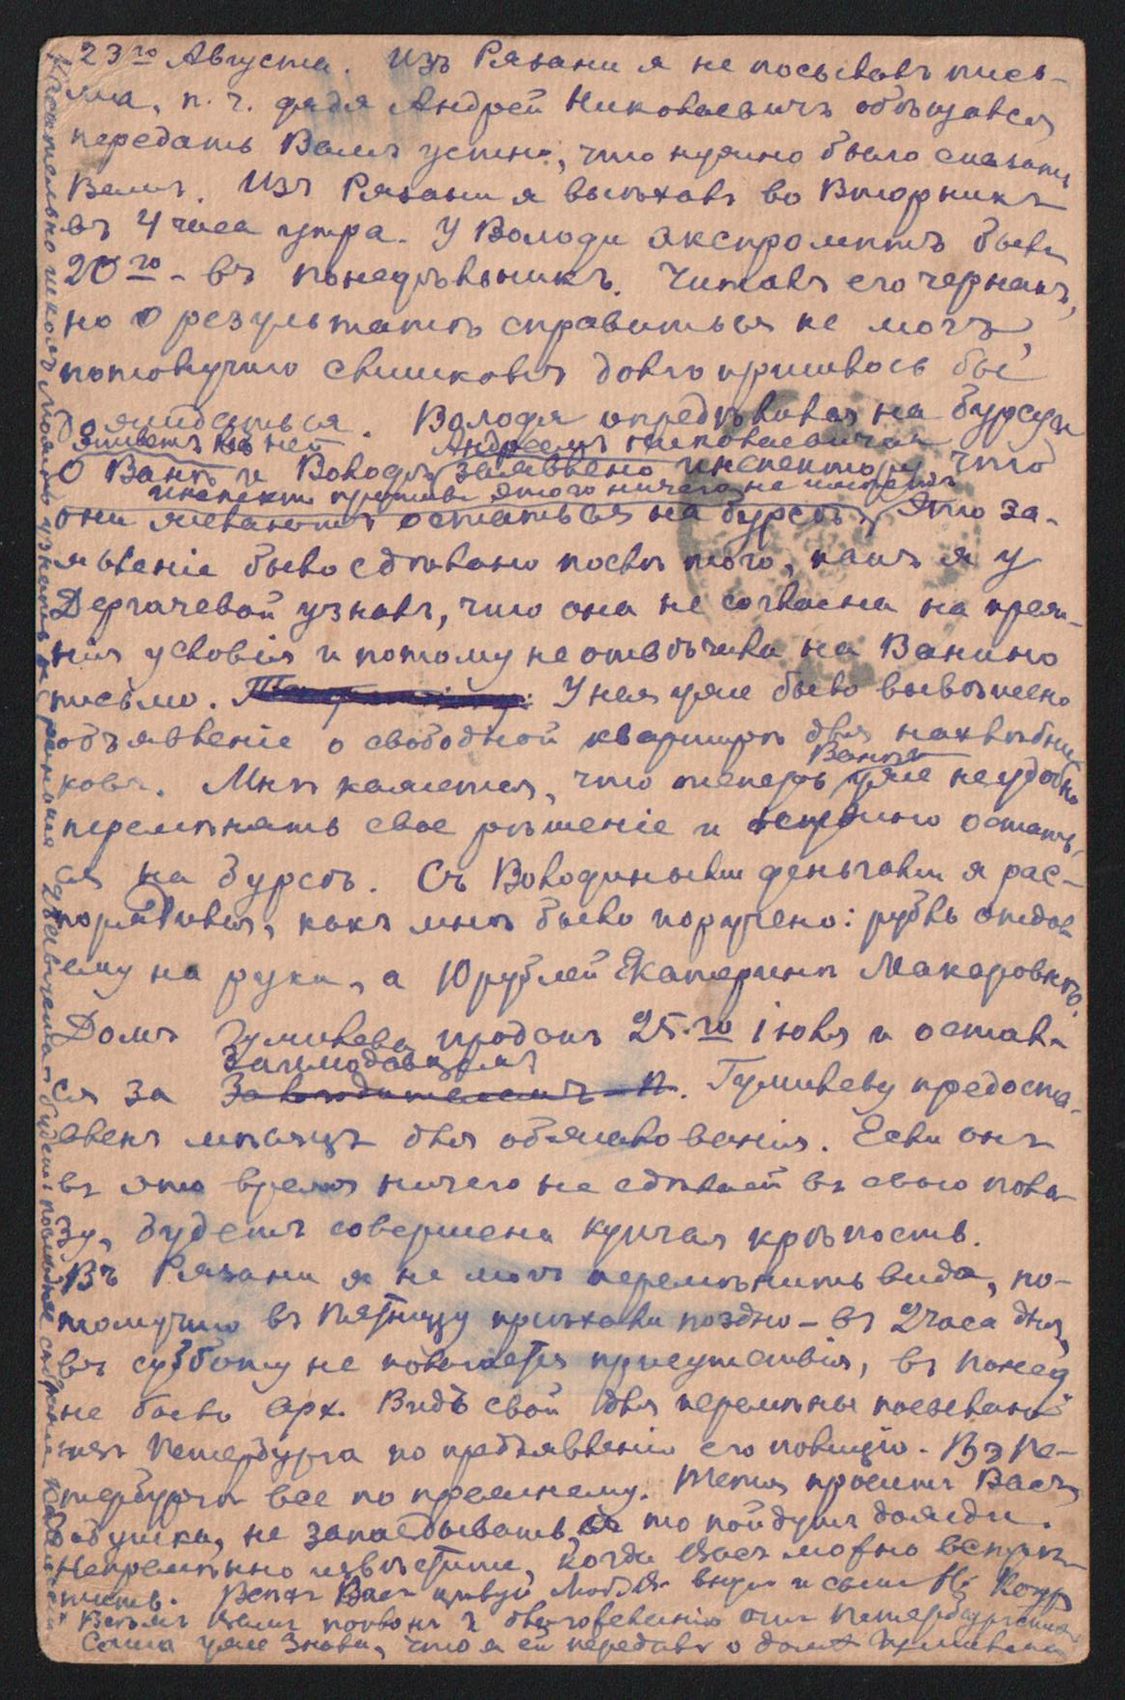 23го Августа. Изъ Рязани я не посылалъ пись-
ма, п. ч. дядя Андрей Николаевичъ обѣщался
передать Вамъ устно, что нужно было сказать
Вамъ. Изъ Рязани я выѣхалъ во Вторникъ
въ 4 часа утра. У Володи экспромптъ былъ
20го - въ понедѣльникъ. Читалъ его чернякъ,
но о результатѣ справиться не могъ,
потомучто слишкомъ долго пришлось бы
дожидаться. Володя опредѣлился на бурсу и
живетъ на ней Андреемъ Николаевичемъ
О Ванѣ и Володѣ заявлено инспектору, что
инспект. противъ этого ничего не имѣетъ
они желаютъ остаться на бурсѣ. Это за-
явленіе было сдѣлано послѣ того, какъ я у
Дергачевой узналъ, что она не согласна на преж-
нія условія и потому не отвѣчала на Ванино
письмо. У нея уже было вывѣшено
объявленіе о свободной квартирѣ для нахлѣбни
ковъ. Мнѣ кажется, что теперь уже неудобно
Ванѣ
перемѣнять свое рѣшеніе и остать-
ся на бурсѣ. Съ Володиными деньгами я рас-
порядился, какъ мнѣ было поручено: рубль отдалъ
ему на руки, а 10 рублей Екатеринѣ Макаровнѣ.
Домъ Гумилева проданъ 25-го іюля и остал
займодавцемъ
ся за Гумилеву предоста-
вленъ мѣсяцъ для обжалованія. Если онъ
въ это время ничего не сдѣлаетъ въ свою поль
зу, будетъ совершена купчая крѣпость.
Въ Рязани я не могъ перемѣнить вида, по-
томучто въ пятницу пріѣхали поздно - въ 2 часа дня,
въ субботу не полагается присутствія, въ понед
не было арх. Видъ свой для перемѣны посылалъ
изъ Петербурга по предъявленіи его полиціи. Въ Пе-
тербургѣ все по прежнему. Тетя проситъ Васъ,
бабушка, не запаздывать, то пойдутъ дожди.
Непремѣнно извѣстите, когда Васъ можно встрѣ-
тить. Всѣхъ Васъ цѣлую Любящ внукъ и сынъ
Всѣмъ Вамъ поклонъ
Саша уже знала, что я ей передалъ о домѣ Гумилева